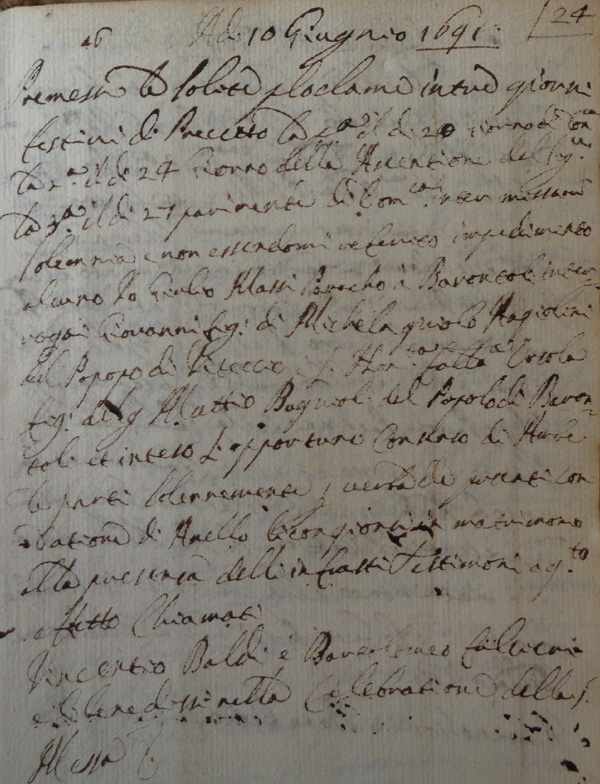 26 Adi 10 Giugnio 1691 24
Premesse le solite proclame in tre giorni
festivi di Precetto la p.a il di 20 Giorno di
la 2.a il di 24 Giorno della Ascentione del Sig.re
la 3.a il di 27 parimente di Dom.ca inter missarum
solemnia e non essendomi impedimento
alcuno Io Giulio Massi Parocho à Barontoli inter
rogai Giovanni fig. di Michelagniolo Magiolini
del Popopo di e Ursola
fig. del Sg Mattio Bagnoli del Popolo di Baron
toli et inteso l'opportuno Consenso di
le parti solennemente p verba de presenti con
datione di Anello li congionsi in matrimonio
alla presenza delli infrasti Testimoni a q.to
effetto Chiamati
Vincentio Baldi e Bartolomeo
e li benedissi nella Celebratione della S.
Messa